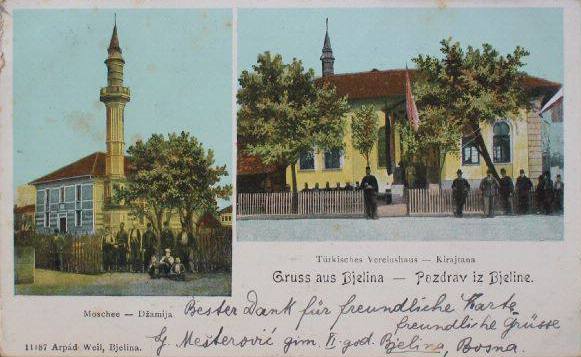 Türkisches Vereinshaus — Kirajtana
Gruss aus Bjelina — Pozdrav iz Bjeline.
Moschee — Džamija
Bester Dank für freundliche Karte
freundliche Grüsse
G. Mešterović gim. II. god. Bjelina, Bosna.
11487 Arpád Weil, Bjelina.